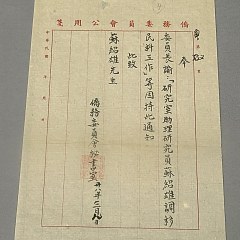 僑務委員會公用箋
委員長諭：「研究室助理研究員蘇紹雄調彰
民科工作」等因特此通知
此致
蘇紹雄先生
僑務委員會秘書室